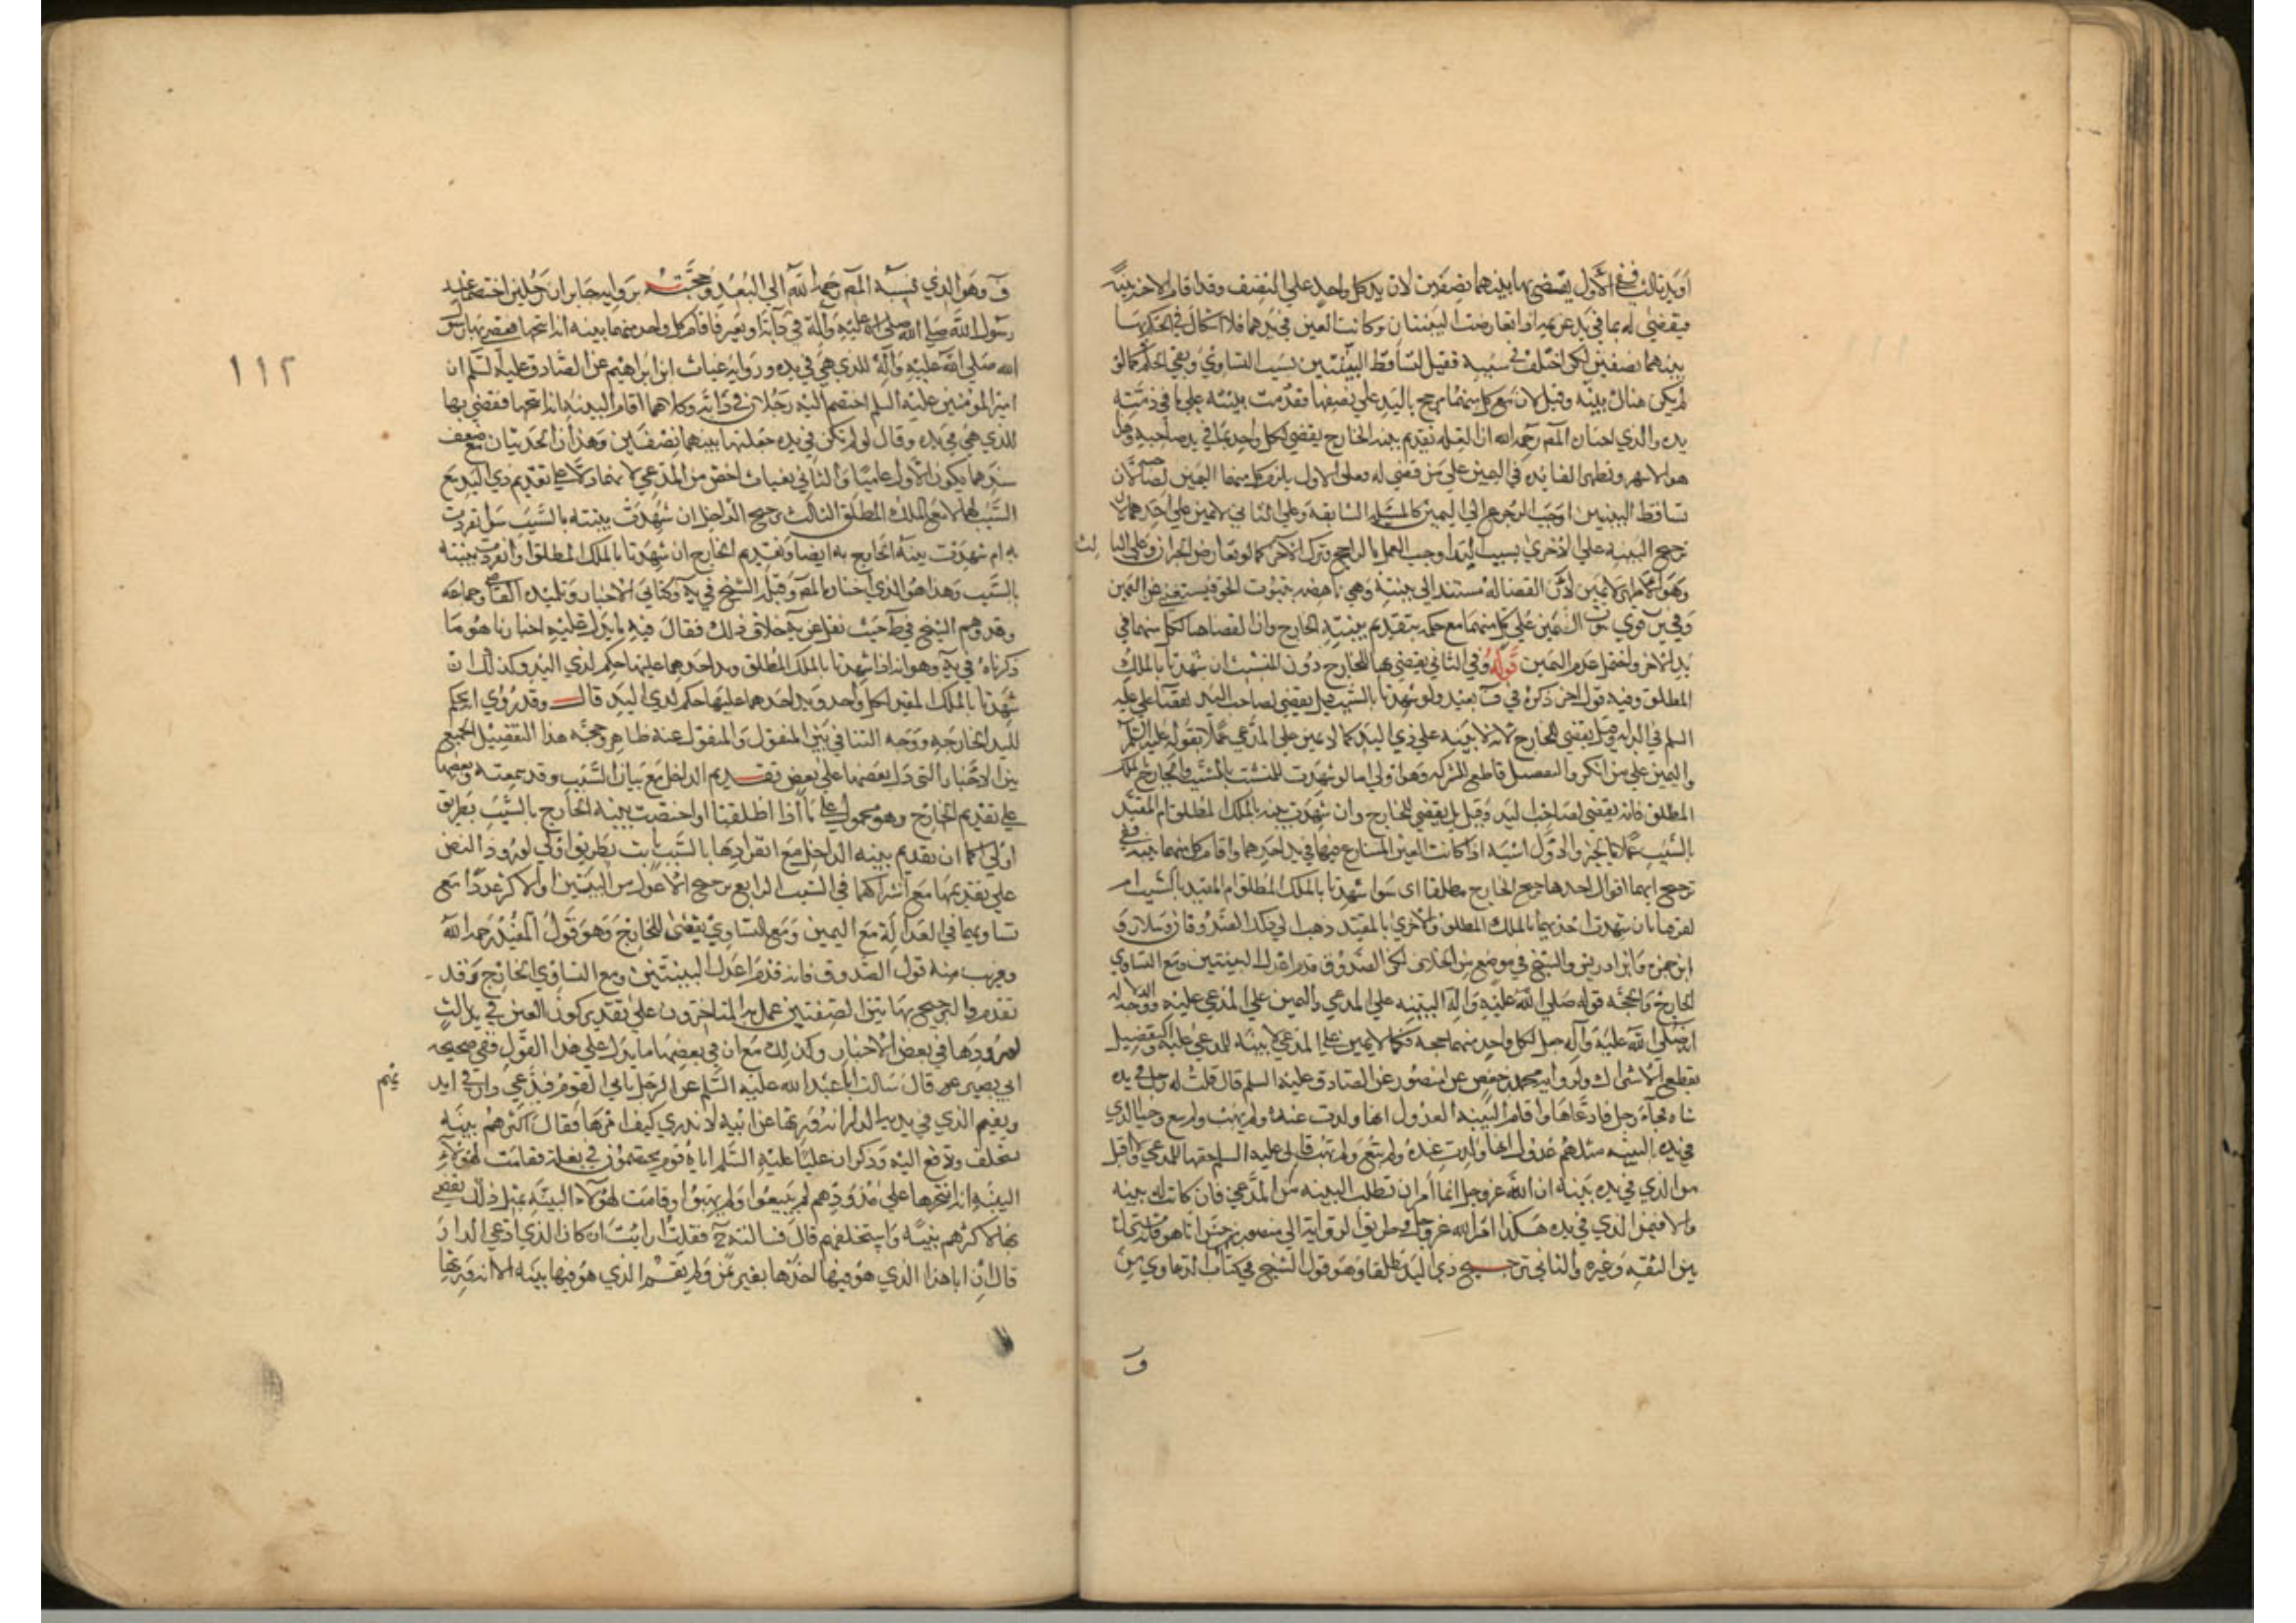 او يد ثالث ففي الاول يقضى بها بينهما نصفين لان يد كل واحد على النصف وقد اقام الاخر بينة
فيقضي له بما في يد غريمه اذا تعارضت البينتان وكانت العين في يدهما فلا اشكال في الحكم بها
بينهما نصفين لكن اختلف في سببه فقيل لتساقط البينتين بسبب التساوي وبقي الحكم كما لو
لم يكن هناك بينة وقيل لان مع كل منهما مرجح باليد على نصفها فقدمت بينته على ما في
يده والذي اختاره المص رحمه الله ان العلة تقديم بينة الخارج يقضي لكل واحد بما في يد صاحبه
هو الاشهر وتظهر الفائدة في اليمين على من قضي له فعلى الاول يلزم كل منهما اليمين لصاحبه لان
تساقط البينتين اوجب الرجوع الى اليمين كالمسئلة السابقة وعلى الثاني لا يمين على احدهما لان
ترجيح البينة على الاخرى بسبب اليد اوجب العمل بالراجح وترك الاخر كما لو تعارض الخبران وعلى الثا لث
وهو الاظهر لا يمين لان القضا له مستند الى بينته وهي ناهضة بثبوت الحق فيستغنى عن اليمين
وفي ير قوى ثبوت اليمين على كل منهما مع حكمه بتقديم بينة الخارج وان القضا لكل منهما بما في
يد الاخر واحتمل عدم اليمين قوله وفي الثاني يقضي بها للخارج دون المتشبث ان شهدتا بالملك
المطلق وفيه قول اخر ذكره في ف بعيد ولو شهدتا بالسبب قيل يقضي لصاحب اليد لقضا علي عليه
السلم في الدابة وقيل يقضي للخارج لانه لا بينة على ذي اليد كما لا يمين على المدعي عملا بقوله عليه السلم
واليمين على من انكر والتفصيل قاطع للشركة وهو اولى اما لو شهدت للمتشبث بالسبب وللخارج بالملك
المطلق فانه يقضي لصاحب اليد وقيل بل يقضي للخارج وان شهدت بينته بالملك المطلق ام المقيد
بالسبب عملا بالخبر والاول اشبه اذا كانت العين المتنازع فيها في يد احدهما واقام كل منهما بينة ففي
ترجيح ايهما اقوال احدها ترجيح الخارج مطلقا اي سوا شهدتا بالملك المطلق ام المقيد بالسبب ام
تفرقتا بان شهدت احديهما بالملك المطلق والاخرى بالمقيد ذهب الى ذلك الصدوقان وسلار و
ابن حمزة وابن ادريس والشيخ في موضع من الخلاف لكن الصدوق قدم اعدل البينتين ومع التساوي
الخارج والحجة قوله صلى الله عليه وآله البينة على المدعي واليمين على المدعى عليه ووجه الدلالة
انه صلى الله عليه وآله جعل لكل واحد منهما حجة فكما لا يمين على المدعي لا بينة للمدعى عليه والتفصيل
يقطع الاشتراك ولرواية محمد بن حفص عن منصور عن الصادق عليه السلم قال قلت له رجل في يده
شاة فجاء رجل فادعاها واقام البينة العدول انها ولدت عنده ولم يهب ولم يبع وجا الذي
في يده البينة مثلهم عدول انها ولدت عنده ولم يبع ولم يهب قال عليه السلم حقها للمدعي ولا اقبل
من الذي في يده بينة ان الله عز وجل انما امر ان تطلب البينة من المدعي فان كانت له بينة
والا فيمين الذي في يده هكذا امر الله عز وجل في طريق الرواية الى منصور
بين الثقة وغيره والثاني ترجيح ذي اليد مطلقا وهو قول الشيخ في كتاب الدعاوي من
و
ف وهو الذي نسبه المص رحمه الله الى البعد وحجته رواية جابر ان رجلين اختصما عند
رسول الله صلى الله عليه وآله في دابة او بعير فاقام كل واحد منهما بينة انه انتجها فقضى بها رسول
الله صلى الله عليه وآله للذي هي في يده ورواية غياث ابن ابراهيم عن الصادق عليه السلم ان
امير المؤمنين عليه السلم اختصم اليه رجلان في دابة وكلاهما اقام البينة انه انتجها فقضى بها
للذي هي في يده وقال لو لم تكن في يده جعلتها بينهما نصفين وهذان الحديثان مع ضعف
سندهما بكون الاول عاميا والثاني بغياث اخص من المدعى لانهما دلا على تقديم ذي اليد مع
السبب لهما لا مع الملك المطلق الثالث ترجيح الداخل ان شهدت بينته بالسبب سوا تفردت
به ام شهدت بينة الخارج به ايضا وتقديم الخارج ان شهدتا بالملك المطلق او انفردت بينته
بالسبب وهذا هو الذي اختاره المص وقبله الشيخ في ية وكتابي الاخبار وتلميذه القاضي وجماعة
وقد وهم الشيخ في ط حيث نقل عن ية خلاف ذلك فقال فيه ما يدل عليه اخبارنا هو ما
ذكرناه في ية وهو انه اذا شهدتا بالملك المطلق ويد احدهما عليها حكم لذي اليد وكذلك ان
شهدتا بالملك المقيد لكل واحد ويد احدهما عليها حكم لذي اليد قال وقد روي انه يحكم
لليد الخارجة ووجه التنافي بين المنقول والمنقول عنه ظاهر وحجة هذا التفصيل الجمع
بين الاخبار التي دل بعضها على بعض تقديم الداخل مع بيان السبب وقد سمعته وبعضها
على تقديم الخارج وهو محمول على ما اذا اطلقتا او اختصت بينة الخارج بالسبب بطريق
اولى كما ان تقديم بينة الداخل مع انفرادها بالسبب ثابت بطريق اولى لورود النص
على تقديمها مع اشتراكهما في السبب الرابع ترجيح الاعدل من البينتين او الاكثر عددا مع
تساويهما في العدالة مع اليمين ومع التساوي يقضى للخارج وهو قول المفيد رحمه الله
ويقرب منه قول الصدوق فانه قدم اعدل البينتين ومع التساوي الخارج وقد
تقدم والترجيح بهاتين الصفتين عمل به المتاخرون على تقدير كون العين في يد ثالث
لورودها في بعض الاخبار وكذلك مع ان في بعضها ما يدل على هذا القول ففي صحيحة
ابي بصير عنه قال سالت ابا عبد الله عليه السلم عن الرجل ياتي القوم فيدعي دارا في ايد يهم
ويقيم الذي في يديه الدار انه ورثها عن ابيه لا ندري كيف امرها فقال اكثرهم بينة
يستحلف ويدفع اليه وذكر ان عليا عليه السلم اتاه قوم يختصمون في بغلة فقامت لهؤلاء
البينة انهم انتجوها على مذودهم لم يبيعوا ولم يهبوا وقامت لهؤلاء البينة بمثل ذلك فقضى
بها لاكثرهم بينة واستحلفهم قال فسالته ح فقلت ارايت ان كان الذي ادعى الدار
قال ان ابا هذا الذي هو فيها اخذها بغير ثمن ولم يقم الذي هو فيها بينة الا انه ورثها
١١٢